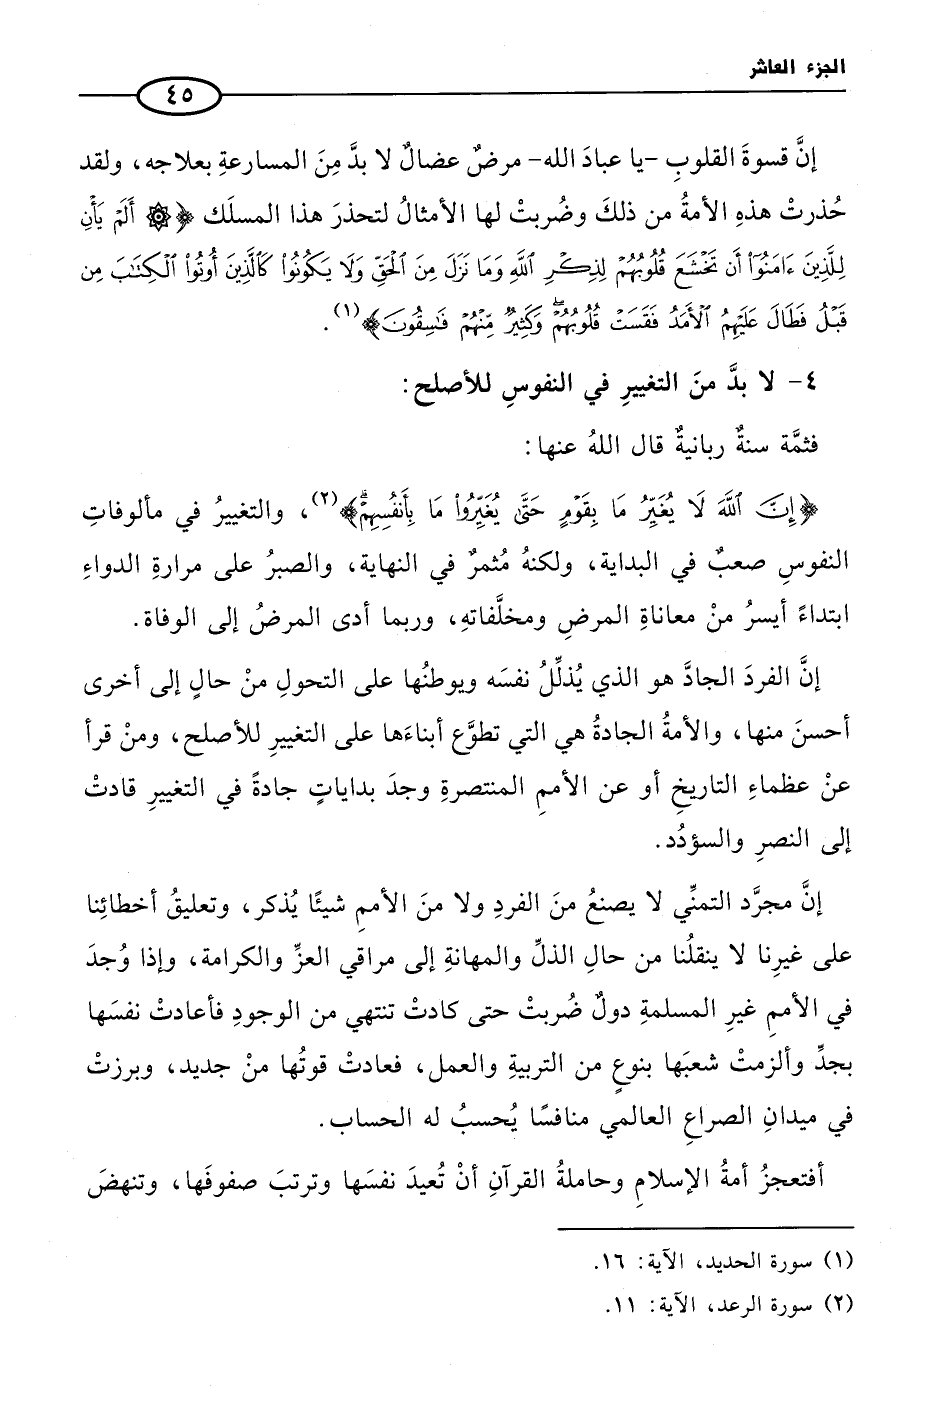 الجزء العاشر
٤٥
إنَّ قسوةَ القلوبِ -يا عبادَ الله- مرضٌ عضالٌ لا بدَّ مِنَ المسارعةِ بعلاجه، ولقد
حُذرتْ هذهِ الأمةُ من ذلكَ وضُربتْ لها الأمثالُ لتحذرَ هذا المسلَك ﴿۞ أَلَمۡ يَأۡنِ
لِلَّذِينَ ءَامَنُوٓاْ أَن تَخۡشَعَ قُلُوبُهُمۡ لِذِكۡرِ ٱللَّهِ وَمَا نَزَلَ مِنَ ٱلۡحَقِّ وَلَا يَكُونُواْ كَٱلَّذِينَ أُوتُواْ ٱلۡكِتَٰبَ مِن
قَبۡلُ فَطَالَ عَلَيۡهِمُ ٱلۡأَمَدُ فَقَسَتۡ قُلُوبُهُمۡۖ وَكَثِيرٞ مِّنۡهُمۡ فَٰسِقُونَ﴾(١).
٤- لا بدَّ منَ التغييرِ في النفوسِ للأصلح:
فثمَّة سنةٌ ربانيةٌ قال اللهُ عنها:
﴿إِنَّ ٱللَّهَ لَا يُغَيِّرُ مَا بِقَوۡمٍ حَتَّىٰ يُغَيِّرُواْ مَا بِأَنفُسِهِمۡۗ﴾(٢)، والتغييرُ في مألوفاتِ
النفوسِ صعبٌ في البداية، ولكنهُ مُثمرٌ في النهاية، والصبرُ على مرارةِ الدواءِ
ابتداءً أيسرُ منْ معاناةِ المرضِ ومخلَّفاتهِ، وربما أدى المرضُ إلى الوفاة.
إنَّ الفردَ الجادَّ هو الذي يُذلِّلُ نفسَه ويوطنُها على التحولِ منْ حالٍ إلى أخرى
أحسنَ منها، والأمةُ الجادةُ هي التي تطوَّع أبناءَها على التغييرِ للأصلح، ومنْ قرأ
عنْ عظماءِ التاريخِ أو عن الأممِ المنتصرةِ وجدَ بداياتٍ جادةً في التغييرِ قادتْ
إلى النصرِ والسؤدُد.
إنَّ مجرَّد التمنِّي لا يصنعُ منَ الفردِ ولا منَ الأممِ شيئًا يُذكر، وتعليقُ أخطائِنا
على غيرِنا لا ينقلُنا من حالِ الذلِّ والمهانةِ إلى مراقي العزِّ والكرامة، وإذا وُجدَ
في الأممِ غيرِ المسلمةِ دولٌ ضُربتْ حتى كادتْ تنتهي من الوجودِ فأعادتْ نفسَها
بجدِّ وألزمتْ شعبَها بنوعٍ من التربيةِ والعمل، فعادتْ قوتُها منْ جديد، وبرزتْ
في ميدانِ الصراعِ العالمي منافسًا يُحسبُ له الحساب.
أفتعجزُ أمةُ الإسلامِ وحاملةُ القرآنِ أنْ تُعيدَ نفسَها وترتبَ صفوفَها، وتنهضَ
(١) سورة الحديد، الآية: ١٦.
(٢) سورة الرعد، الآية: ١١.